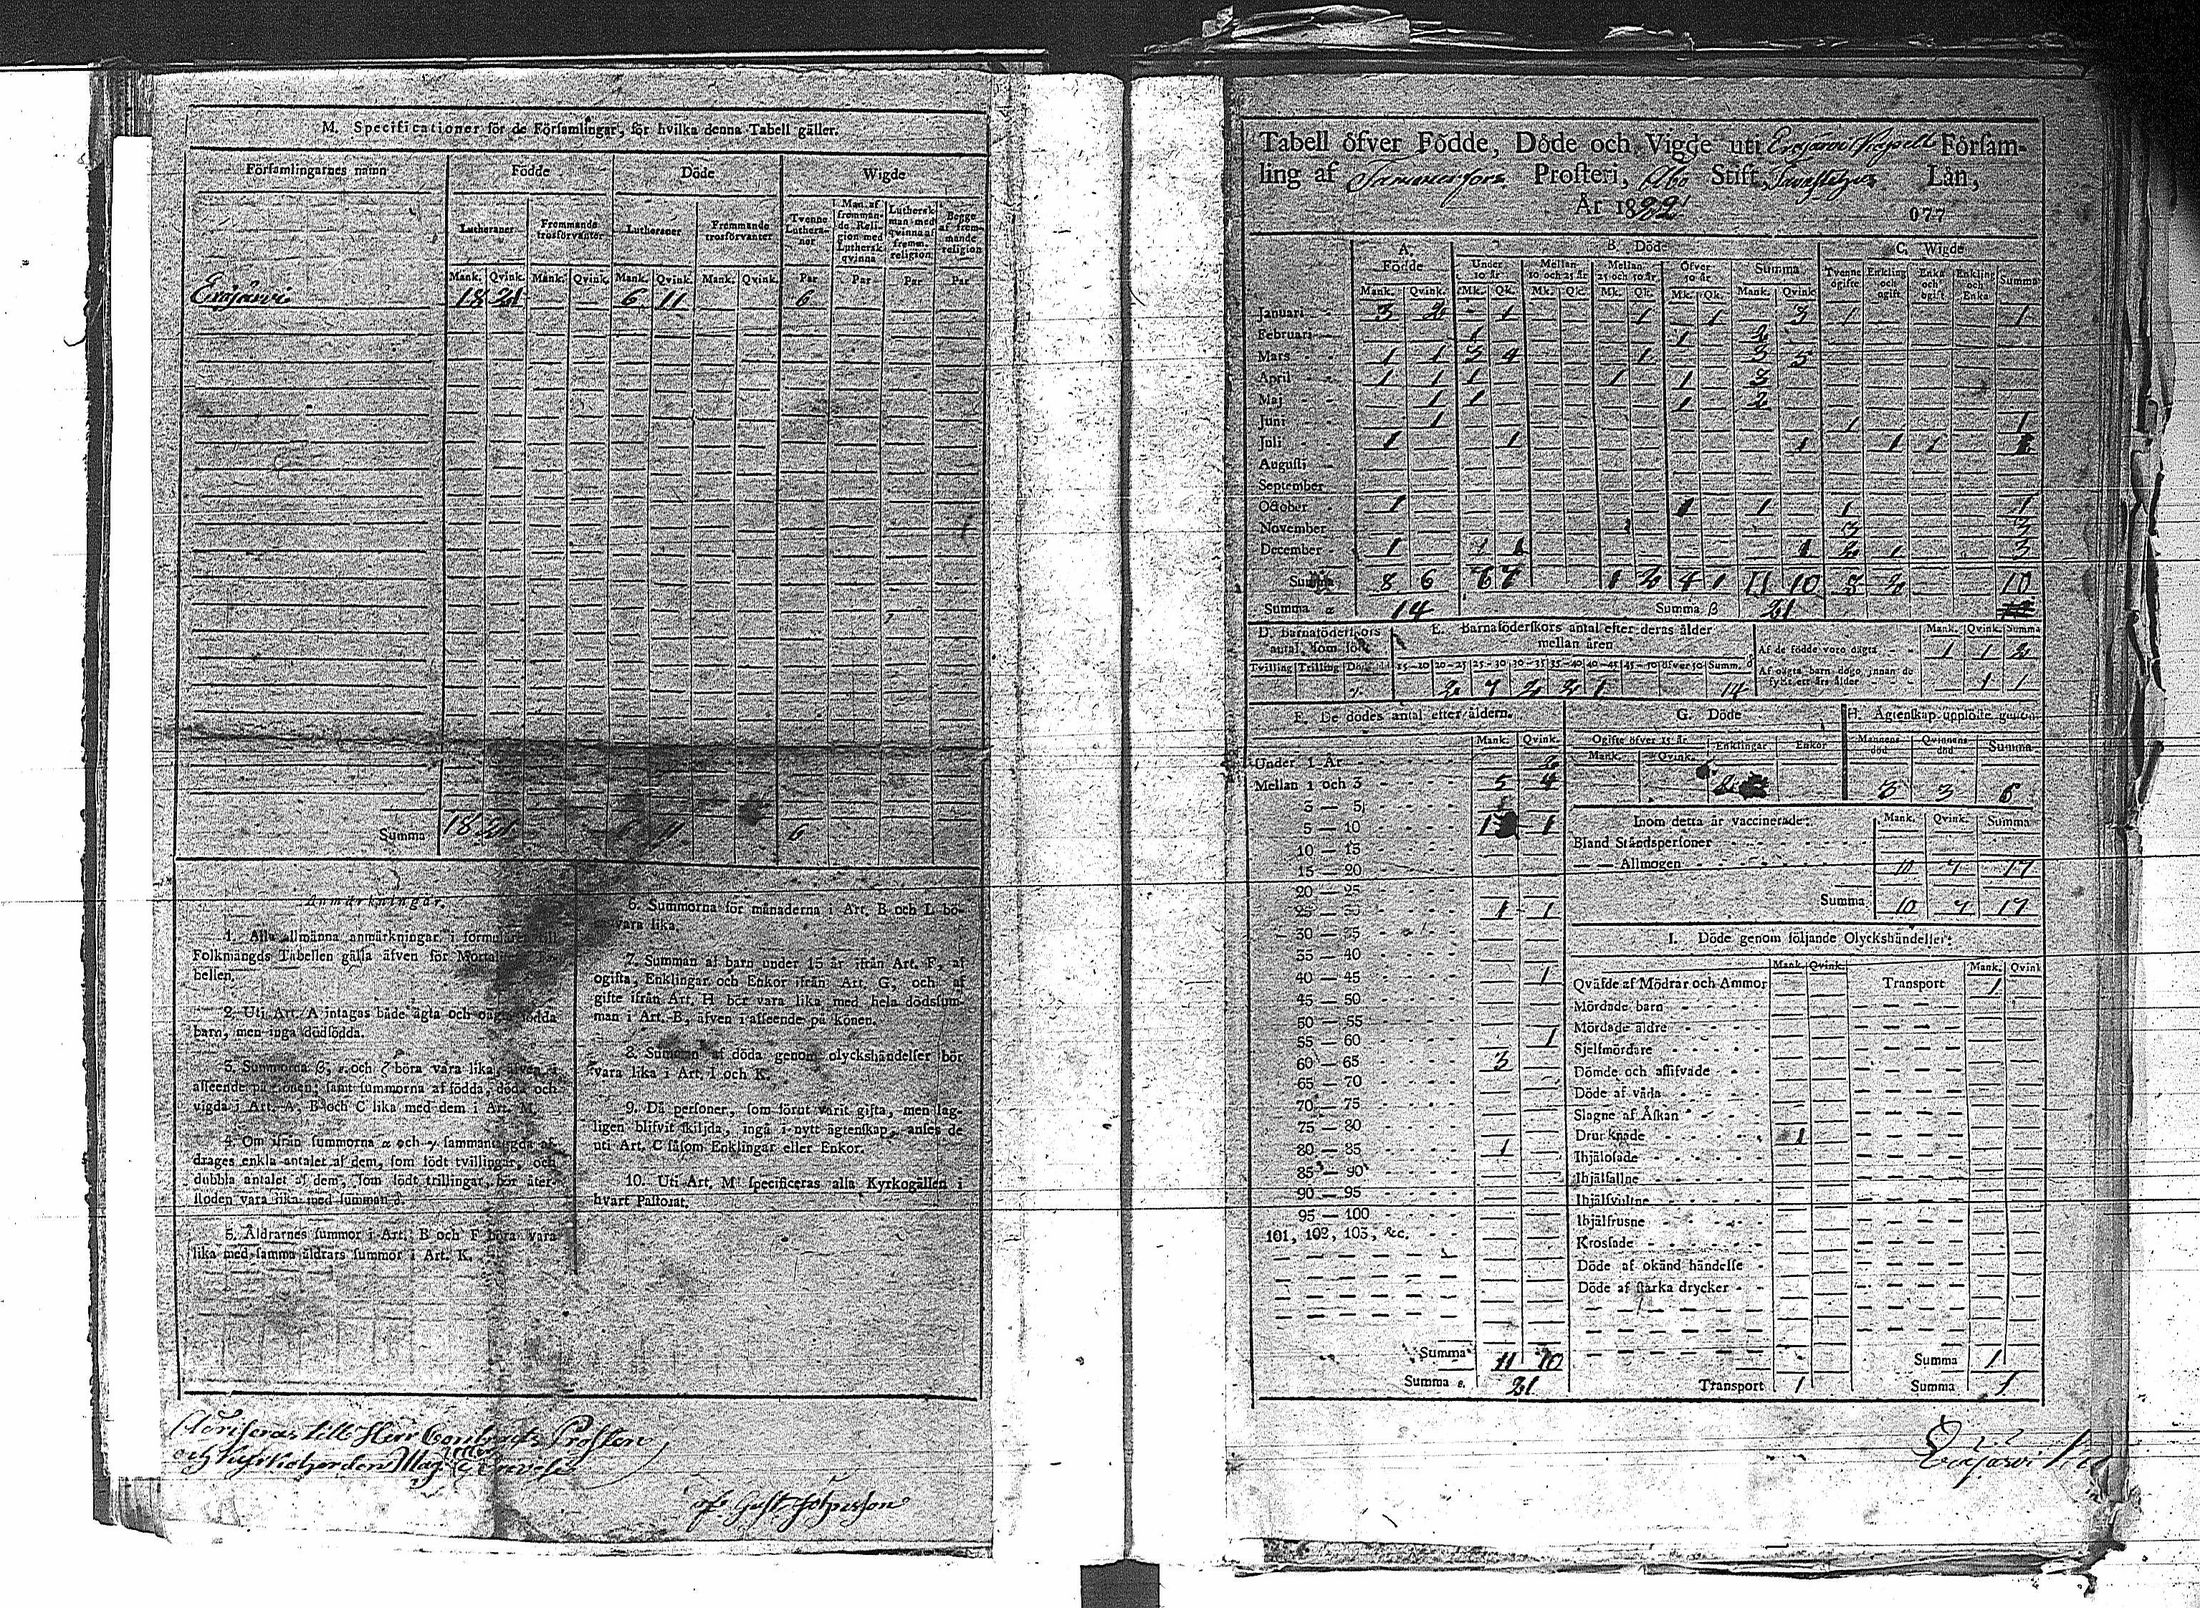 M. Specificationer för de Församlingar, för hvilka denna Tabell gäller.
Församlingarnes namn Födde Döde Wigde
Lutheraner Fremmande trosförvanter Lutheraner Fremmande trosförvanter Tvenne Lutheraner Man af fremmande Religion med Luthersk qvinna Luthersk man med qvinna af fremm. religion Begge af fremmande religion
Mank. Qvink. Mank. Qvink. Mank. Qvink. Mank. Qvink. Par Par Par Par
Erajärvi 18 21 6 11 6
Summa 18 21 11 6
Anmärkningar.
1. Alla allmänna anmärkningar i formuläret till
Folkmängds Tabellen gälla äfven för
bellen.
2. Uti Art. A intagas både ägta och oägta födda
barn, men inga dödfödda.
3. Summorna β, ε och ζ böra vara lika, äfven i
afseende på könen; samt summorna af födda, döda och
vigda i Art. A, B och C lika med dem i Art. M.
4. Om ifrån summorna α och γ sammanlagda af-
drages enkla antalet af dem, som födt tvillingar, och
dubbla antalet af dem, som födt trillingar, bör åter-
stoden vara lika med summan δ.
5. Åldrarnes summor i Art. B och F böra vara
lika med samma åldrars summor i Art. K.
6. Summorna för månaderna i Art. B och L bö-
vara lika.
7. Summan af barn under 15 år ifrån Art. F, af
ogifta, Enklingar och Enkor ifrån Art. G, och af
gifte ifrån Art. H bör vara lika med hela dödssum-
man i Art. B, äfven i afseende på könen.
8. Summan af döda genom olyckshändelser bör
vara lika i Art. I och K.
9. Då personer, som förut varit gifta, men lag-
ligen blifvit skiljda, ingå i nytt ägtenskap, anses de
uti Art. C såsom Enklingar eller Enkor.
10. Uti Art. M specificeras alla Kyrkogällen i
hvart Pastorat.
till Herr Prosten
och Kyrkoherden Mag
af Gust Johansson
Tabell öfver Födde, Döde och Vigde uti Erajärvi Kapell Församling
ling af Tammerfors Prosteri, Åbo Stift, Tavastehus Län,
År 1822
077
A. Födde B. Döde C. Wigde
Under 10 år Mellan 10 och 25 år Mellan 25 och 50 år Öfver 50 år Summa Tvenne ogifte Enkling och ogift Enka och ogift Enkling och Enka Summa
Mank. Qvink. Mk. Qk. Mk. Qk. Mk. Qk. Mk. Qk. Mank. Qvink.
Januari 3 2 1 1 1 3 1 1
Februari 1 1 2
Mars 1 1 3 4 1 3 5
April 1 1 1 1 1 3
Maj 1 1 1 2
Juni 1 1 1
Juli 1 1 1 1 1
Augusti
September
October 1 1 1 1 1
November 3 3
December 1 1 1 2 1 3
Summa 8 6 7 1 2 4 1 11 10 8 2 10
Summa α 14 Summa β 21
D. Barnaföderskors antal, som föd E. Barnaföderskors antal efter deras ålder mellan åren Mank. Qvink. Summa
Af de födde voro oägta 1 1 2
Tvilling Trilling 15-20 20-25 25-30 30-35 35-40 40-45 45-50 öfver 50 Summ. δ
Af oägta barn dogo innan de fyllt ett års ålder 1 1
2 7 2 2 1 14
F. De dödes antal efter åldern.
Mank. Qvink.
Under 1 År 2
Mellan 1 och 3 5 4
3 — 5
5 — 10 1
10 — 15
15 — 20
20 — 25
25 — 30 1 1
30 — 35
35 — 40
40 — 45 1
45 — 50
50 — 55
55 — 60 1
60 — 65 3
65 — 70
70 — 75
75 — 80
80 — 85 1
85 — 90
90 — 95
95 — 100
101, 102, 103, &c.
Summa 11 10
Summa ε. 21
G. Döde
Ogifte öfver 15 år Enklingar Enkor
Mank. Qvink.
2
H. Ägtenskap upplöste genom
Mannens död Qvinnans död Summa
3 3 6
Inom detta år vaccinerade: Mank. Qvink. Summa
Bland Ståndspersoner
— — Allmogen 10 7 17
Summa 10 7 17
I. Döde genom följande Olyckshändelser:
Mank. Qvink. Mank. Qvink
Qväfde af Mödrar och Ammor Transport 1
Mördade barn
Mördade äldre
Sjelfmördare
Dömde och aflifvade
Döde af våda
Slagne af Åskan
Drunknade 1
Ihjälosade
Ihjälfallne
Ihjälsvultne
Ihjälfrusne
Krossade
Döde af okänd händelse
Döde af starka drycker
Summa 1
Transport 1 Summa 1
Erajärvi